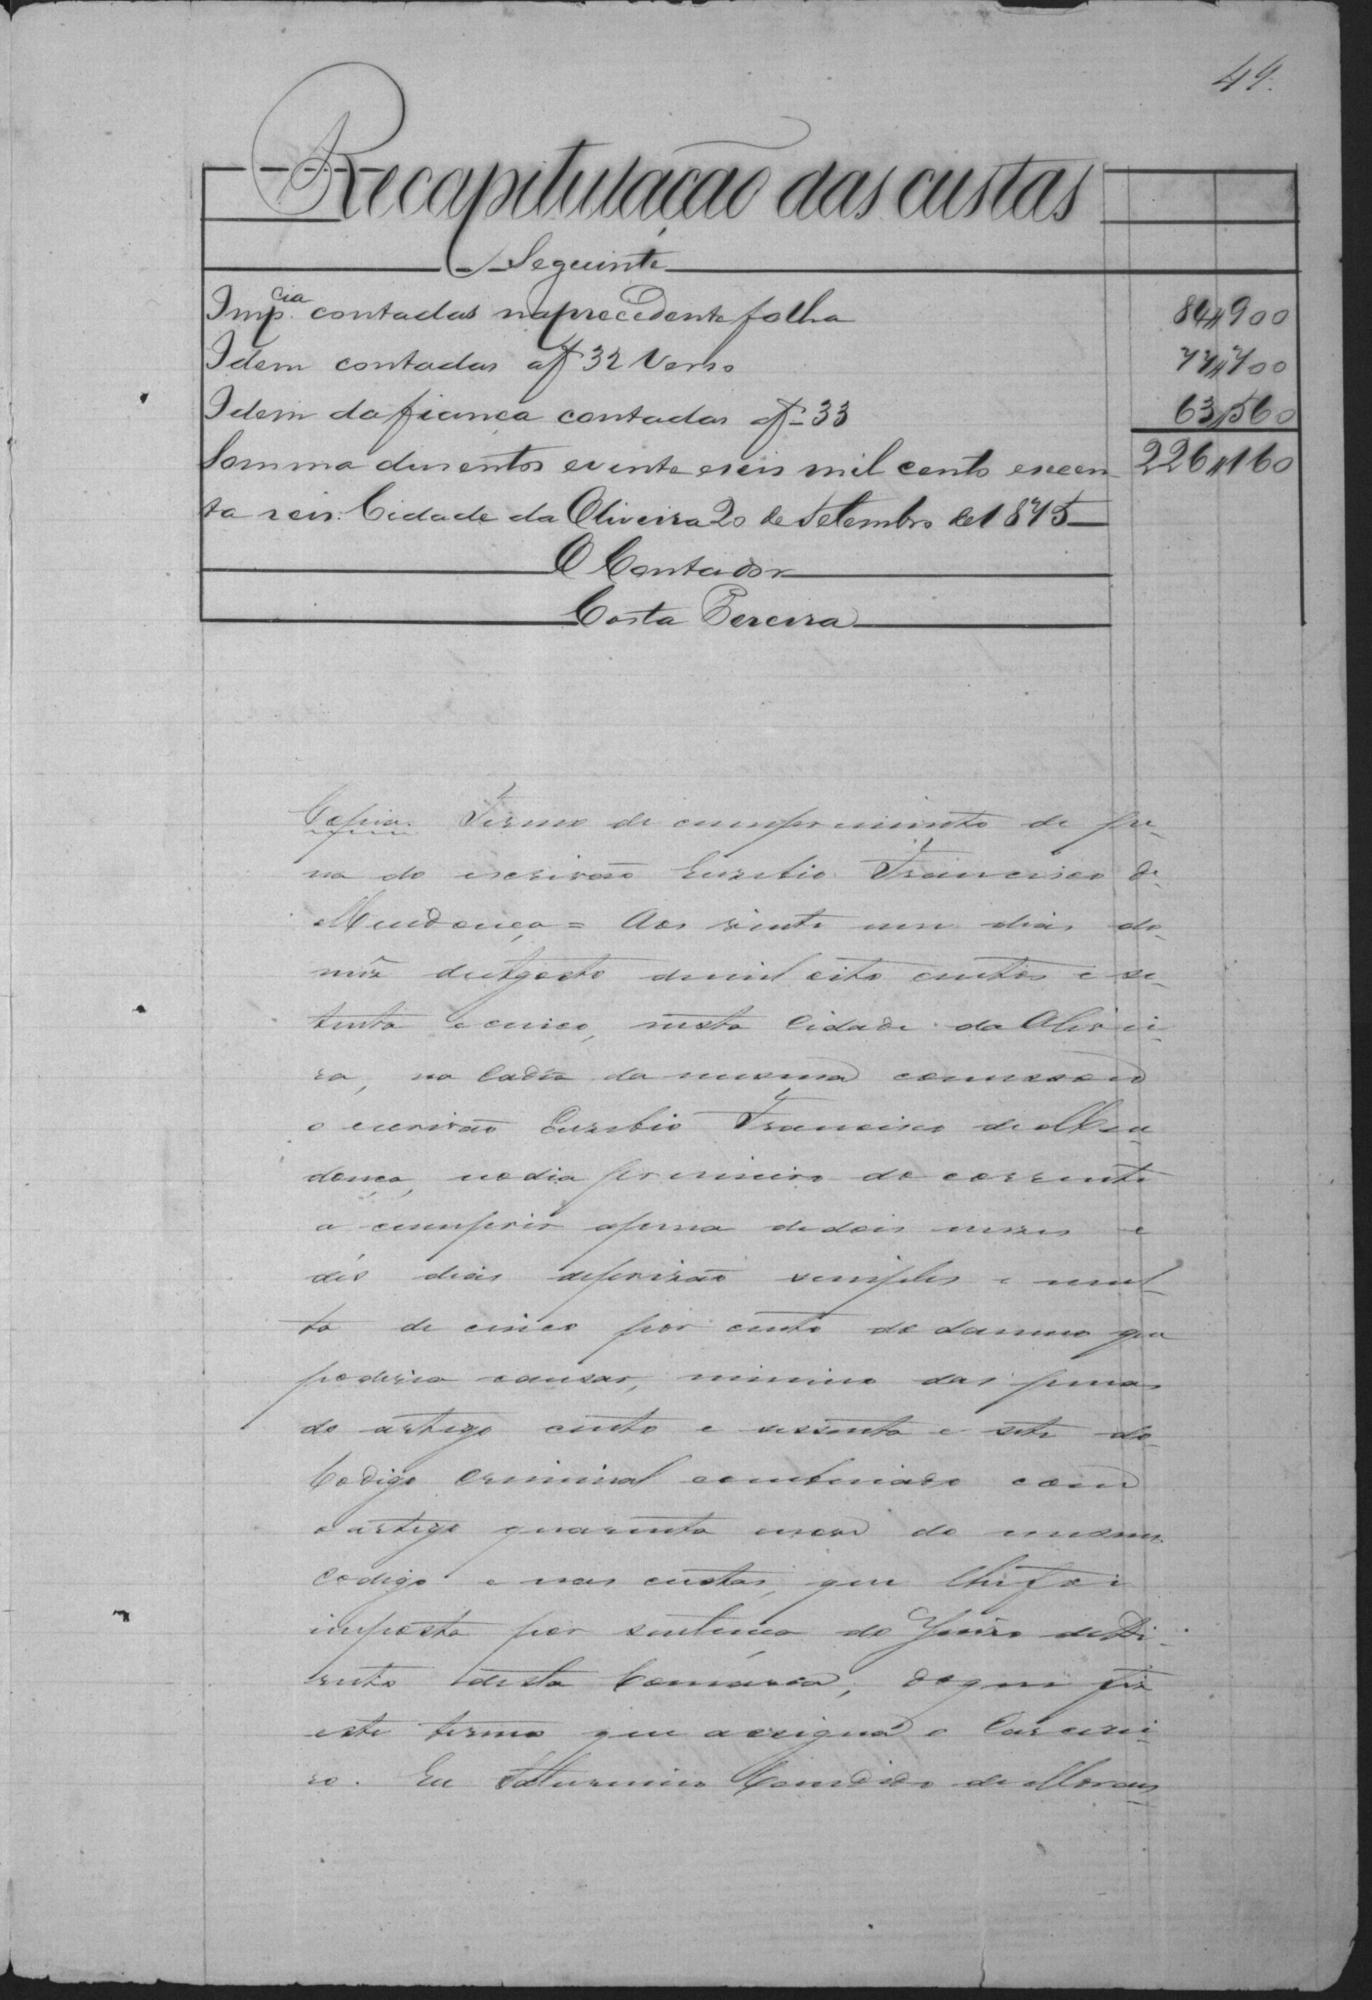 49.
Recapitulação das custas
Seguinte
Imp.cia contadas na precedente folha 84,,900
Idem contadas af 32 Verso 77,,700
Idem da fiança contadas af 33 63,,560
Somma dusentos evinte eseis mil cento esecen 226,,160
ta reis. Cidade da Oliveira 20 de Setembro de 1875
O Contador
Costa Pereira
Copia. Termo de cumprimento de pe-
na do escrivão Euzebio Francisco de
Mendonça = Aos vinte um dias do
mez de Agosto de mil oito centos e se-
tenta e cinco, nesta Cidade da Olivei-
ra, na Cadêa da mesma começou
o escrivão Euzebio Francisco de Men-
donça, no dia primeiro do corrente
a cumprir apena de dois mezes e
dés dias de prizão simples e mul-
ta de cinco por cento do damno que
poderia causar, minimo das penas
do artigo cento e sessenta e sete do
Codigo Criminal combinado com
o artigo quarenta nove do mesmo
Codigo e nas custas, que lhe foi
imposta por sentença do Juizo de Di-
reito desta Comarca, do que fiz
este termo que assigna o Carcerei-
ro. Eu Saturnino Candido de Moraes